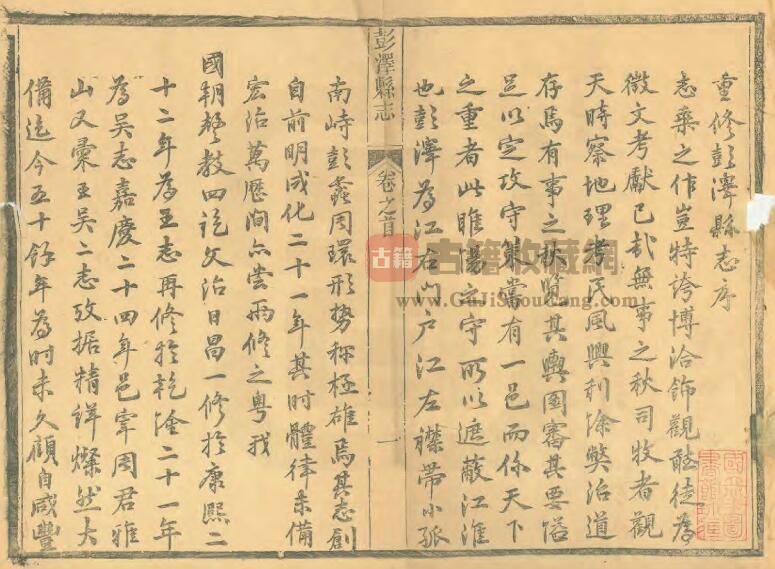 重修彭澤縣志序
志乘之作豈特誇博洽飾觀聽徒為
徵文考獻已哉無事之秋司牧者觀
天時察地理考民風興利除弊治道
存焉有事之秋覽其輿圖審其要隘
足以定攻守策嘗有一邑而係天下
之重者此睢陽之守所以遮蔽江淮
也彭澤為江右門戶江左襟帶小孤
彭澤縣志
卷之首
一
南峙彭蠡周環形勢稱極雄焉其志創
自前明成化二十一年其時體律未備
宏治萬歷間亦嘗兩修之粵我
國朝聲教四訖文治日昌一修於康熙二
十二年為王志再修於乾隆二十一年
為吳志嘉慶二十四年邑宰周君雅
山又彙王吳二志攷据精詳燦然大
備迄今五十餘年為時未久顧自咸豐
古籍
古籍收藏網
www.GuJiShouCang.com